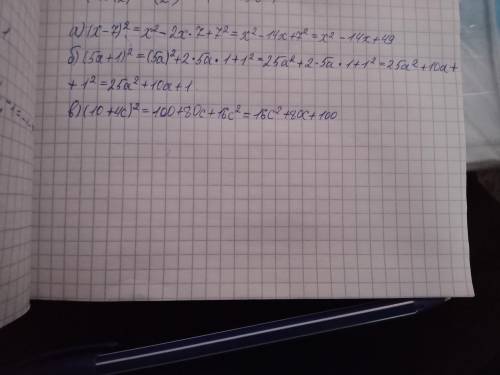 а) (x-7)² = x² - 2x·7+7² = x² - 14x+7² = x² - 14x+49
б) (5a+1)² = (5a)²+2·5a·1+1² = 25a²+2·5a·1+1² = 25a²+10a+
+1² = 25a²+10a+1
в) (10+4c)² = 100+80c+16c² = 16c²+80c+100